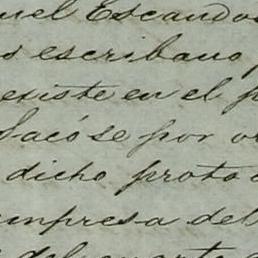 nuel Escandos
s escribano
existe en el p
Sacóse por or
dicho proto
mpresa del